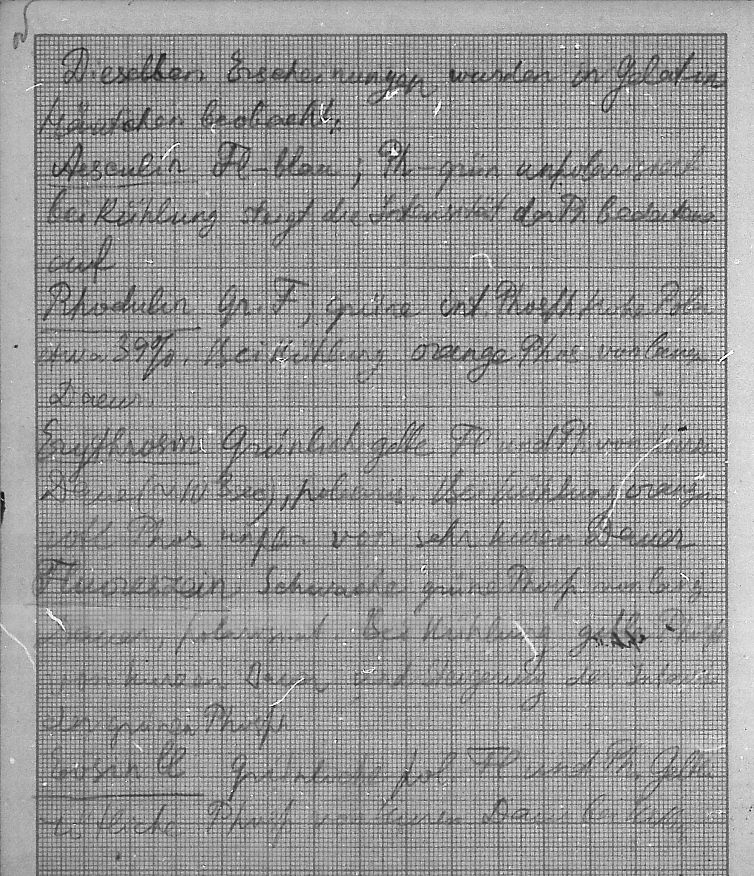 Dieselben Erscheinungen wurden in Gelatin
Häutchen beobacht.
Aesculin Fl-blau; Ph-grün unpolarisiert
bei Kühlung steigt die Intensität der Ph
auf
Rhodulin Gr. F, grüne Pola
etwa 39%. Bei Kühlung orange Phos von
Dauer.
Erythrosin Grünlich gelbe Fl und Ph von
Dauer (~10 Sec), polaris. Bei Kühlung orange
Phos unpolar von sehr kurzen Dauer
Fluoreszein Schwache grüne Phosp von lang
Dauer, polarisiert Bei Kühlung gelbe Phosp
von kurzen Dauer und Steigerung der Intensi
der grünen Phosp.
Eosin Grünliche pol Fl und Ph, Gelbe
rötliche Phosp von kurzen Dauer bei